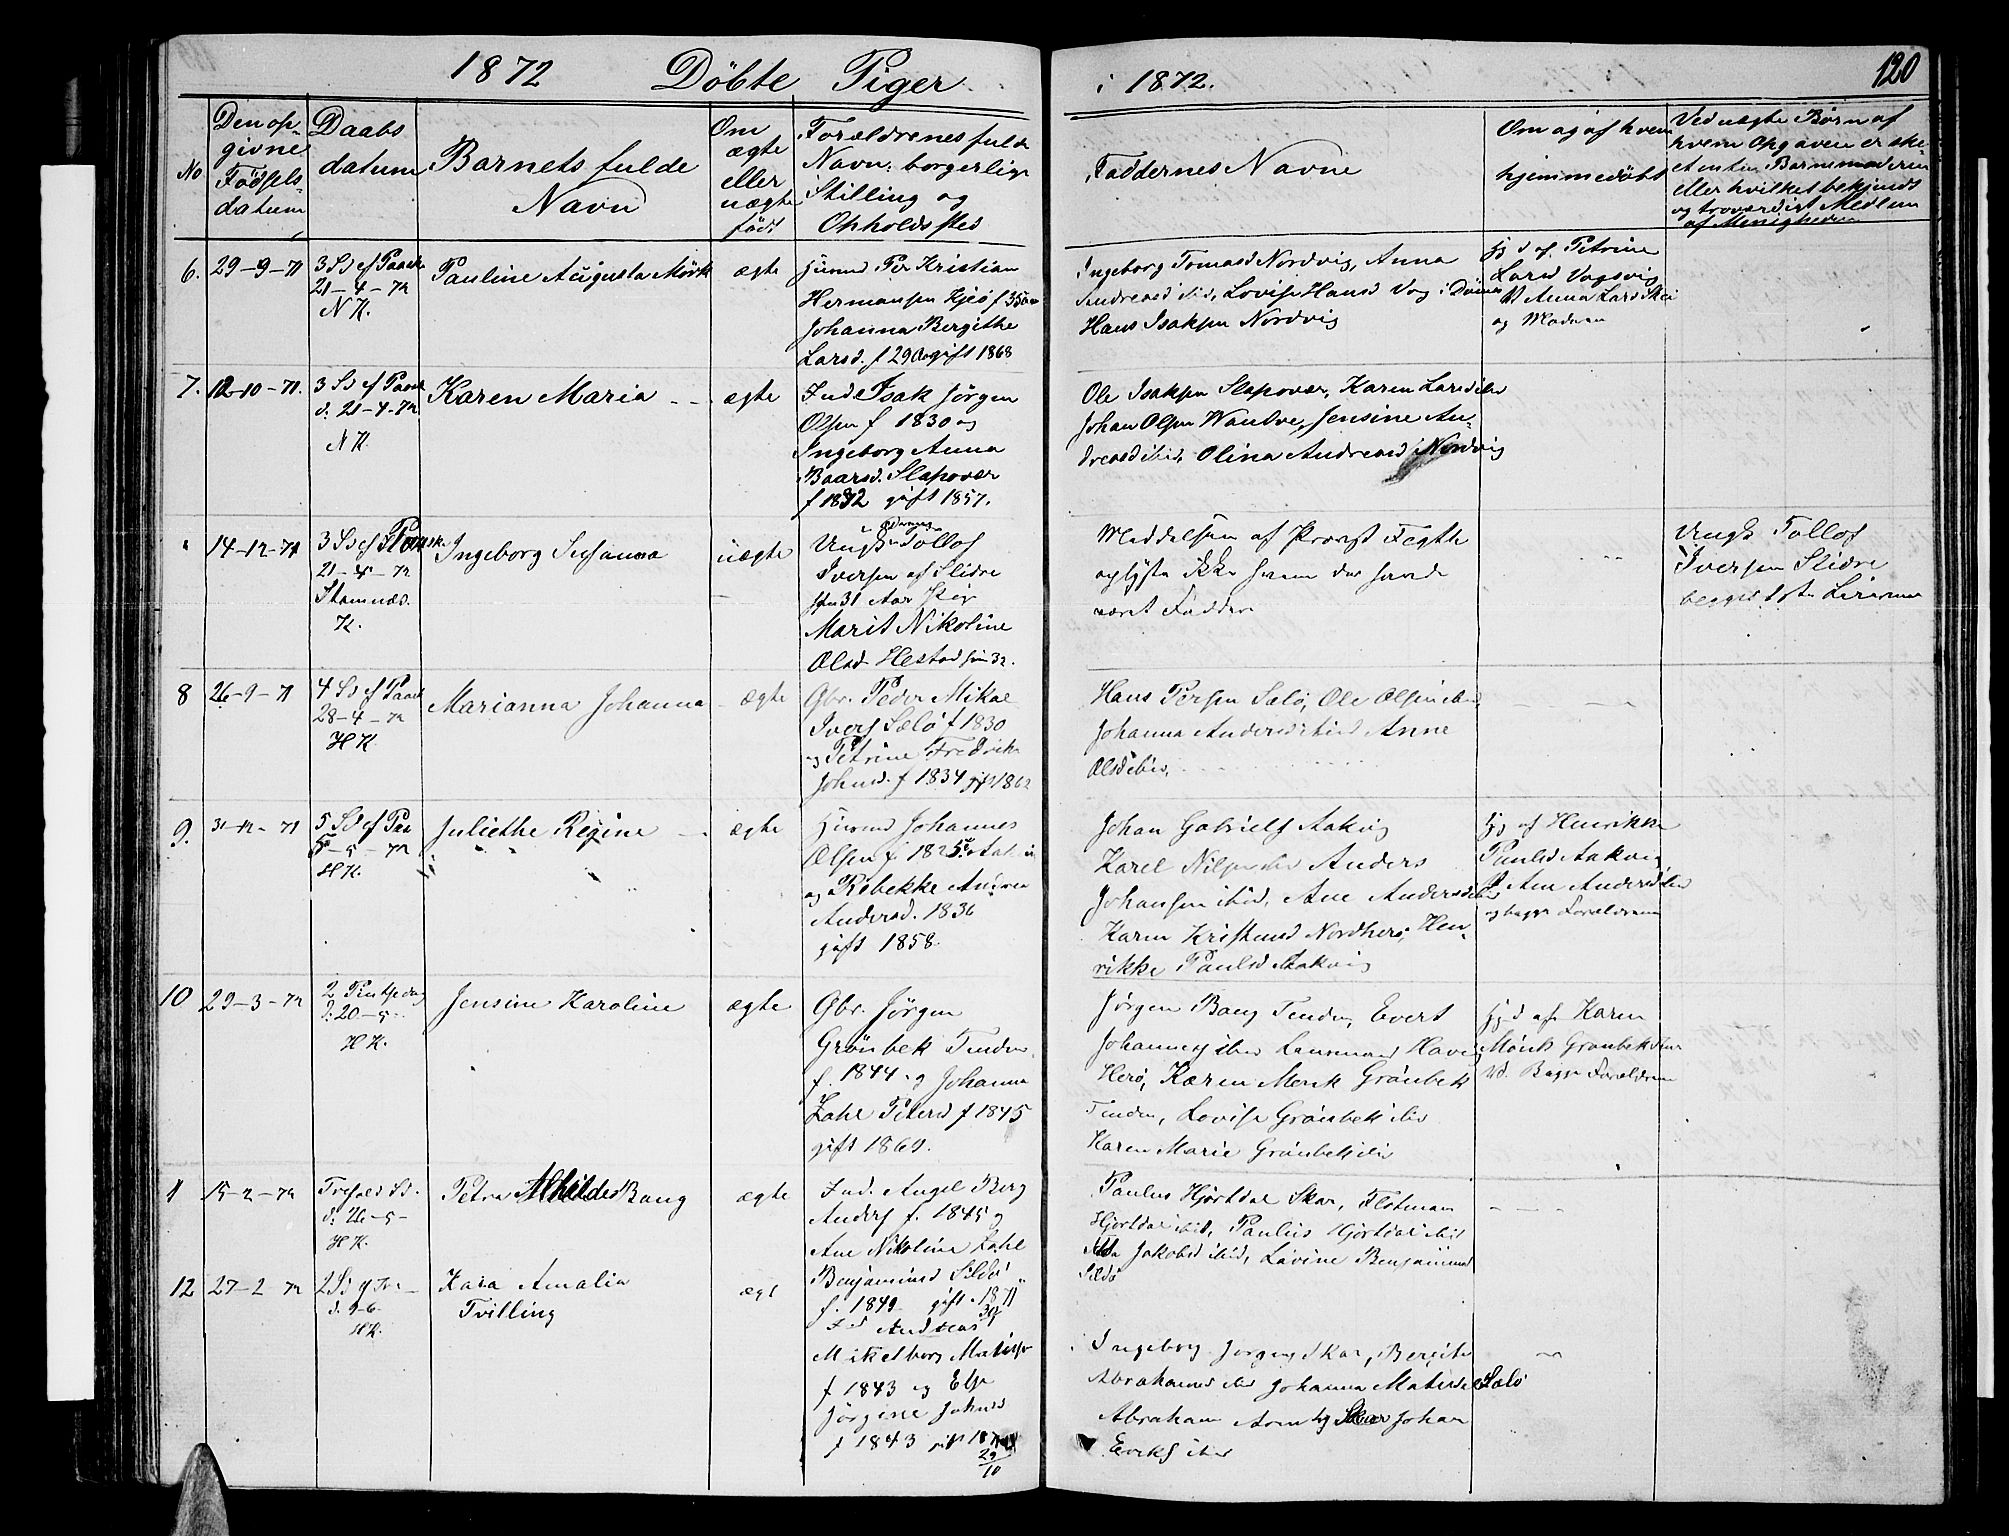 1872 Döbte Piger
i 1872.
120
No
Den op-
givne
Födsels
datum
Daabs
datum
Barnets fulde
Navn
Om
ægte
eller
uægte
föd
Forældrenes fulde
Navn: borgerlige
Stilling og
Opholdssted
Faddernes Navne
Om og af hvem
hjemmedöbt
Ved uægte Børn af
hvem Opgaven er ske-
et enten Barnemoderen
eller hvilket bekjendt
og troværdigt Medlem
af Menigheden
6.
29-9-71
3 Sd ef Paaske
21-4-72
N K.
Pauline Augusta Mörk
ægte
Husmd Per Kristian
Hermansen
Johanna Bergithe
Larsd. f 29 gift 1868
Ingeborg Tomasd Nordvig, Anna
Andreasd ibid, Lovise Hansd Vog i Dönnes
Hans Isaksen Nordvig
Hjd af Petrine
Larsd Vogsvig
Anna Larsd
og Moderen
7.
12-10-71.
3 Sd ef Paask
d. 21-4-72
N K.
Karen Maria
ægte
Ind Isak Jörgen
Olsen f 1830 og
Ingeborg Anna
Baarsd. Slapovær
f 1832 gift 1857.
Ole Isaksen Slapovær, Karen Larsd ibd
Johan Olsen Wandve, Jensine An-
dreasd ibid, Olina Andreasd Nordvig
14-12-71
3 Sd ef Paask.
21-4-72
Stamnæs.
K.
Ingeborg Susanna
uægte
Ungk Tollof
Iversen af Slidre
31 Aar Pige
Marit Nikoline
Olsd Hestad
Meddelsen af Provst Fegth
oplyste ikke hvem der havde
været Fadder
Ungk Tollof
Iversen Slidre
8
26-9-71
4 Sd ef Paask
28-4-72
H K.
Marianna Johanna
ægte
Gbr. Peder Mikal
Ivers Sælö f 1830
og Petrine Fredrikke
Johnsd. f 1834 gift 1862
Hans Persen Sælö, Ole Olsen ibid,
Johanna Andersd ibid Anne
Olsd ibid,
9.
31-12-71
5 Sd ef Paa
5-5-72
H K.
Juliethe Regine
ægte
Husmd Johannes
Olsen f 1825
og Rebekke Andrea
Andersd. 1836
gift 1858.
Johan Gabriels Aakvig
Karel Nilsen ibd Anders
Johansen ibid, Ane Andersd ibid
Karen Kristensd Nordherö, Hen-
rikke Paulsd Aakvig
Hj af Henrikke
Paulsd Aakvig
Ane Andersd ibd
og begge Forældrene
10
29-3-72
2 Pintsedag
d: 20-5-
H K.
Jensine Karoline
ægte
Gbr. Jörgen
Grönbek Tenden
f. 1844 og Johanna
Zahl Petersd f 1845
gift 1869.
Jörgen Bang Tenden, Evert
Johannes ibid Lensmand Havig
Herö, Karen Mörk Grönbek
Tenden, Lovise Grönbek ibd
Karen Marie Grönbek ibd
Hjd af Karen
Mörk Grönbek
Begge Forældrene
11
15-2-72
Trefold. Sd.
d: 26-5-
H K.
Petra Bang
ægte
Ind. Angel Berg
Anders f. 1845 og
Ane Nikoline Zahl
Benjaminsd Sildö
f. 1849 gift 1871
Paulus Hjortdal Skar,
Hjortdal ibid, Paulus Hjortdal ibid
Jakobsd ibid, Lavine Benjaminsd
Sildö
12
27-2 72
2 Sd ef Tre
d. 9-6-
H K.
Kaia Amalia
Tvilling
ægt
Andreas
Mikelborg
f 1843 og Else
Jörgine Johnsd
f 1843 gift
29/10
Ingeborg Jörgensd Skar, Bergite
Abrahamsd ibd Johanna Sælö
Abraham Johan
Eriks ibid